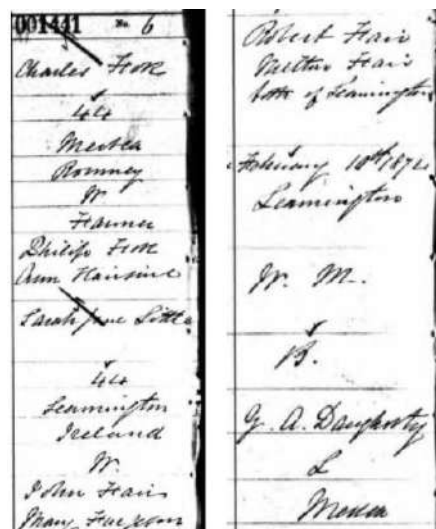 001441 No. 6
Charles Fox
44
Mersea
Romney
W.
Farmer
Philip Fox
Ann
Sarah Jane Little
44
Leamington
Ireland
W.
John Hair
Mary
Robert Hair
Hair
both of Leamington
February 10th 1874
Leamington
W. M.
B.
G. A. Daugherty
L
Mersea